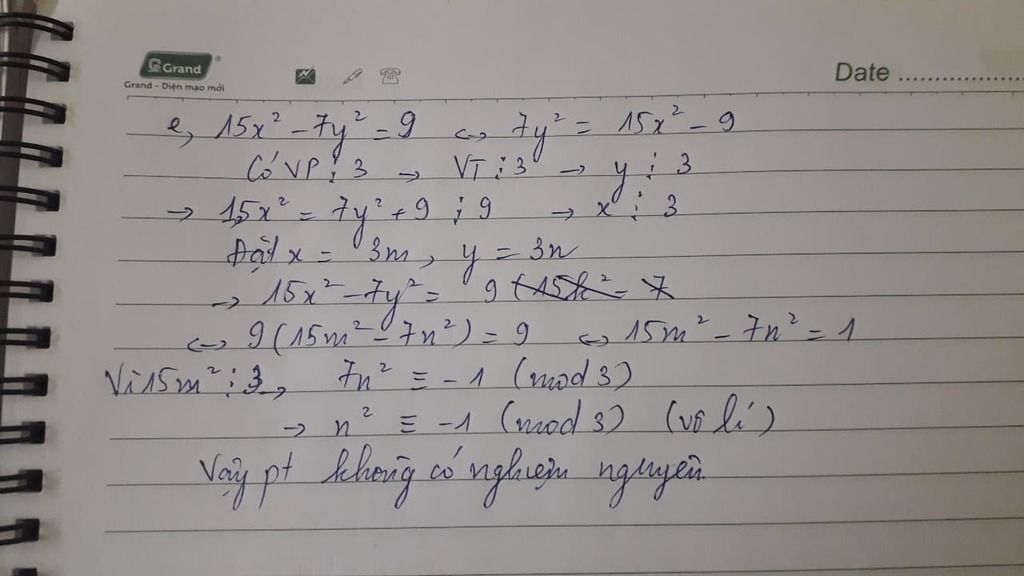 Grand
Grand - Diện mạo mới
Date ......................
e, 15x² - 7y² = 9 <-> 7y² = 15x² - 9
Có VP ⋮ 3 -> VT ⋮ 3 -> y ⋮ 3
-> 15x² = 7y² + 9 ⋮ 9 -> x ⋮ 3
Đặt x = 3m, y = 3n
-> 15x² - 7y² = 9
<-> 9(15m² - 7n²) = 9 <-> 15m² - 7n² = 1
Vì 15m² ⋮ 3, 7n² ≡ -1 (mod 3)
-> n² ≡ -1 (mod 3) (vô lí)
Vậy pt không có nghiệm nguyên.